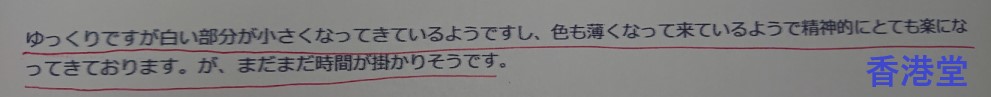 ゆっくりですが白い部分が小さくなってきているようですし、色も薄くなって来ているようで精神的にとても楽にな
ってきております。が、まだまだ時間が掛かりそうです。
香港堂